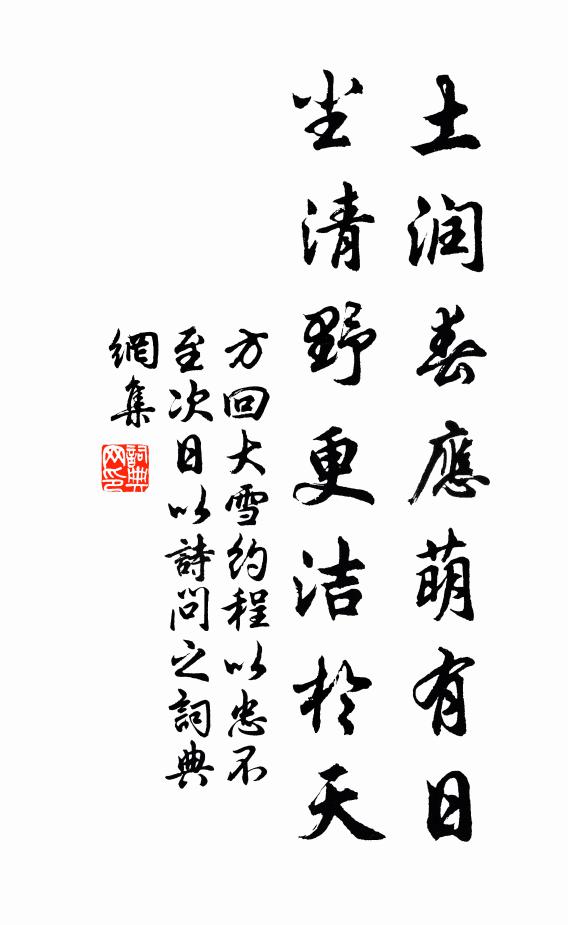 土润春應萌有日
尘清野更洁於天
方回大雪約程以忠不
至次日以詩問之詞典
網集
詞典
网印